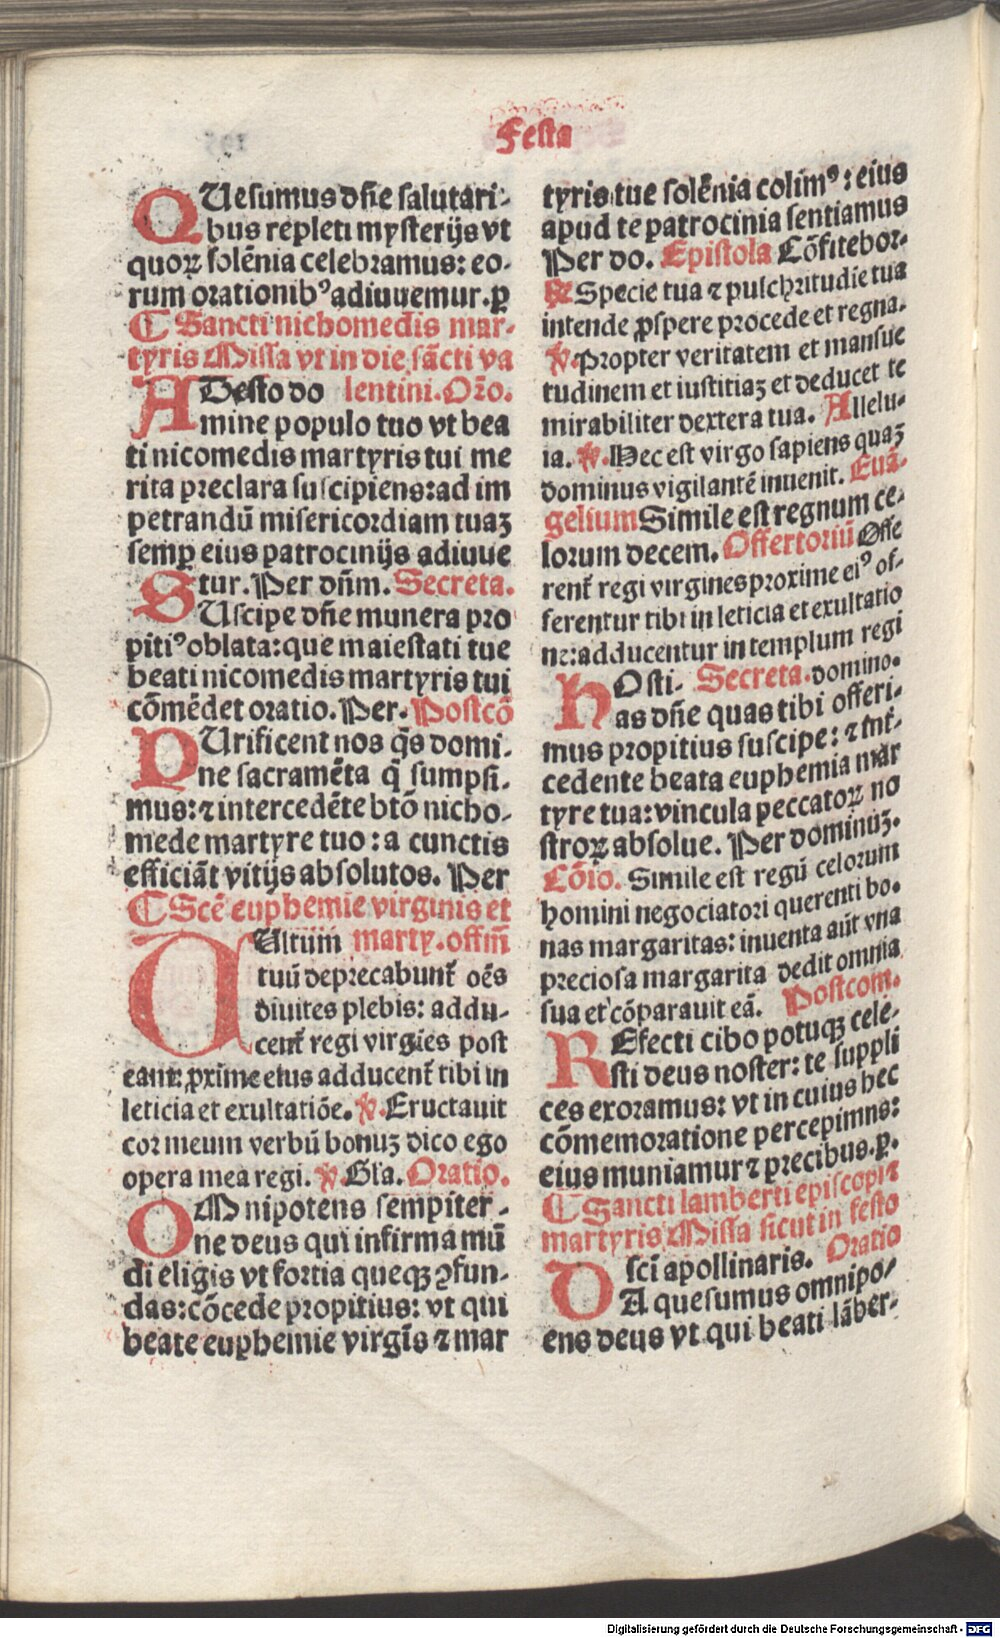 Festa
QUesumus dn̄e salutari-
bus repleti mysterijs vt
quoꝝ solēnia celebramus: eo-
rum orationibꝰ adiuuemur. ꝑ
¶ Sancti nichomedis mar-
tyris Missa vt in die sācti va
ADesto do lentini. Orō.
mine populo tuo vt bea
ti nicomedis martyris tui me
rita preclara suscipiens: ad im
petrandū misericordiam tuaꝫ
semꝑ eius patrocinijs adiuue
tur. Per dn̄m. Secreta.
SUscipe dn̄e munera pro
pitiꝰ oblata: que maiestati tue
beati nicomedis martyris tui
cōmēdet oratio. Per. Postcō
PUrificent nos q̄s domi-
ne sacramēta q̄ sumpsi-
mus: ⁊ intercedēte btō nicho-
mede martyre tuo: a cunctis
efficiāt vitijs absolutos. Per
¶ Scē euphemie virginis et
VUltum marty. offm̄
tuū deprecabunt᷑ oēs
diuites plebis: addu-
cent᷑ regi virgīes post
eam: ꝓxime eius adducent᷑ tibi in
leticia et exultatiōe. ℣. Eructauit
cor meum verbū bonuꝫ dico ego
opera mea regi. ℣. Gl̄a. Oratio.
OMnipotens sempiter-
ne deus qui infirma mū
di eligis vt fortia queqꝫ ꝯfun-
das: cōcede propitius: vt qui
beate euphemie virgīs ⁊ mar
tyris tue solēnia colimꝰ: eius
apud te patrocinia sentiamus
Per do. Epistola Cōfitebor.
℟ Specie tua ⁊ pulchritudīe tua
intende ꝓspere procede et regna.
℣. Propter veritatem et mansue
tudinem et iustitiaꝫ et deducet te
mirabiliter dextera tua. Allelu-
ia. ℣. Hec est virgo sapiens quaꝫ
dominus vigilantē inuenit. Euā-
gelium Simile est regnum ce-
lorum decem. Offertoriū Offe
rent᷑ regi virgines proxime eiꝰ of-
ferentur tibi in leticia et exultatio
ne: adducentur in templum regi
HOsti- Secreta. domino.
as dn̄e quas tibi offeri-
mus propitius suscipe: ⁊ int᷑-
cedente beata euphemia mar
tyre tua: vincula peccatoꝝ no
stroꝝ absolue. Per dominuꝫ.
Cōio. Simile est regnū celorum
homini negociatori querenti bo-
nas margaritas: inuenta aūt vna
preciosa margarita dedit omnia
sua et cōparauit eā. Postcom.
REfecti cibo potuqꝫ cele-
sti deus noster: te suppli
ces exoramus: vt in cuius hec
cōmemoratione percepimus:
eius muniamur ⁊ precibus. ꝑ.
¶ Sancti lamberti episcopi ⁊
martyris Missa sicut in festo
sci apollinaris. Oratio
DA quesumus omnipo-
ens deus vt qui beati lāber-
Digitalisierung gefördert durch die Deutsche Forschungsgemeinschaft - DFG